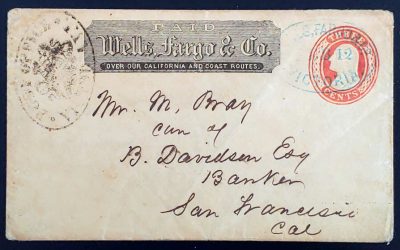 PAID
Wells, Fargo & Co.
OVER OUR CALIFORNIA AND COAST ROUTES.
THREE
12
CENTS
Mr. M. Bray
care of
B. Davidson Esq
Banker
San Francisco
Cal